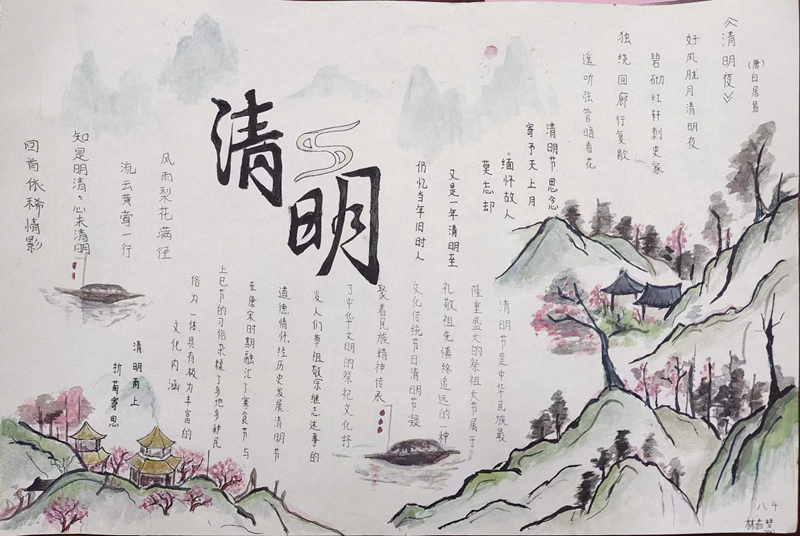 《清明夜》
(唐)白居易
好风胜月清明夜
碧砌红轩刺史家
独绕回廊行复歇
遥听弦管暗看花
清明节思念
寄予天上月
缅怀故人
莫忘却
又是一年清明至
仍忆当年旧时人
清明
清明节是中华民族最
隆重盛大的祭祖大节属于
礼敬祖先慎终追远的一种
文化传统节日清明节凝
聚着民族精神传承
了中华文明的祭祀文化抒
发人们尊祖敬宗继志述事的
道德情怀。经历史发展,清明节
在唐宋时期融汇了寒食节与
上巳节的习俗杂糅了多地多种民
俗为一体,具有极为丰富的
文化内涵
风雨梨花满径
流云黄莺一行
知是明清,心未清明
回首依稀情影
清明雨上
折菊寄思
八4